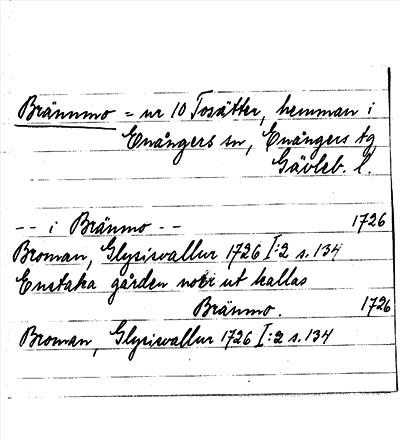 Brännmo = nr 10 Tosätter, hemman i
Enångers sn, Enångers tg
Gävleb. l.
-- i Bränmo -- 1726
Broman, Glysisvallur 1726 I:2 s. 134
Enstaka gården norr ut kallas
Bränmo. 1726
Broman, Glysisvallur 1726 I:2 s. 134